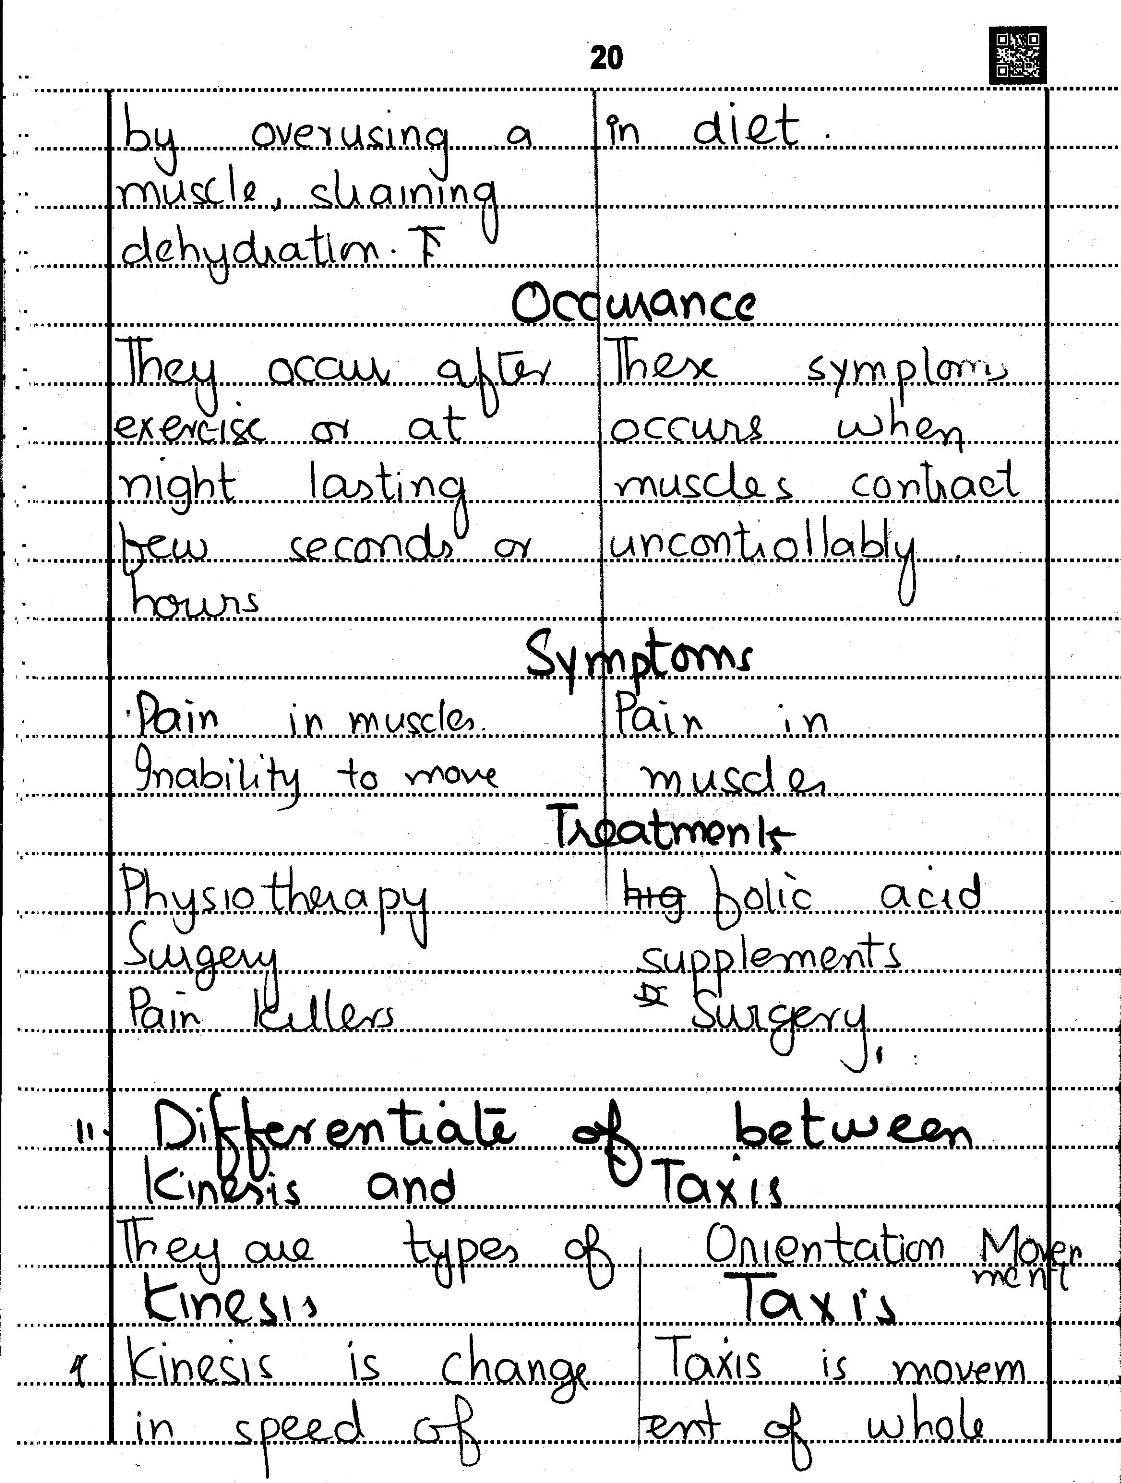 20
by overusing a in diet.
muscle, straining
dehydration. T
Occurance
They occur after These symptoms
exercise or at occurs when
night lasting muscles contract
few seconds or uncontrollably.
hours
Symptoms
Pain in muscles. Pain in
Inability to move muscles
Treatments
Physiotherapy hig folic acid
Surgery supplements
Pain killers Surgery.
11. Differentiate of between
Kinesis and Taxis
They are types of Orientation Movem
ment
Kinesis Taxis
Kinesis is change Taxis is movem
in speed of ent of whole